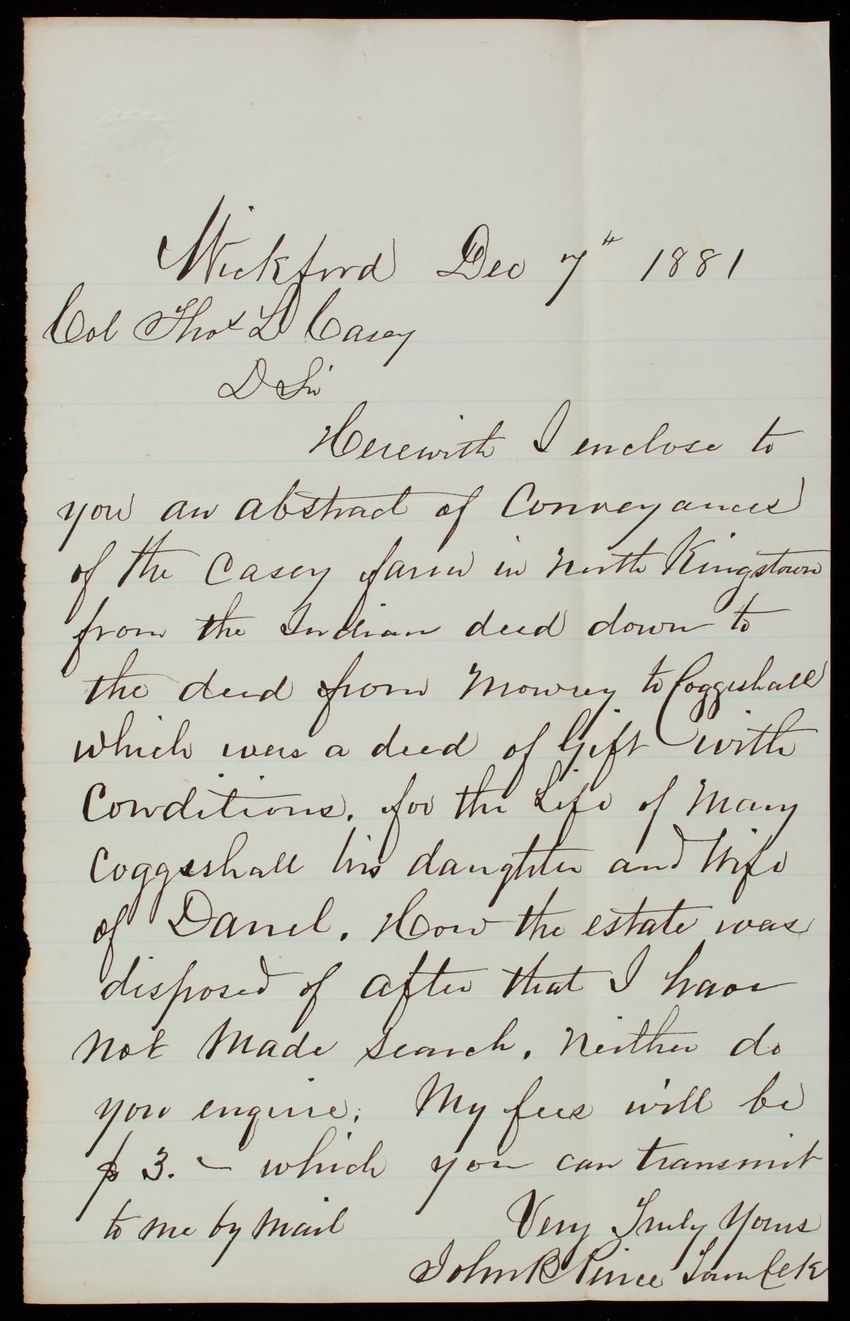 Wickford Dec 7th 1881
Col Thos L Casey
D Sir
Herewith I enclose to
you an abstract of Conveyances
of the Casey farm in North Kingstown
from the Indian deed down to
the deed from Mowrey to Coggeshall
which was a deed of Gift with
Conditions. for the Life of Mary
Coggeshall his daughter and Wife
of Daniel. How the estate was
disposed of after that I have
not Made search. Neither do
you enquire. My fees will be
$3. — which you can transmit
to me by Mail
Very Truly Yours
John B Pierce Town Clk